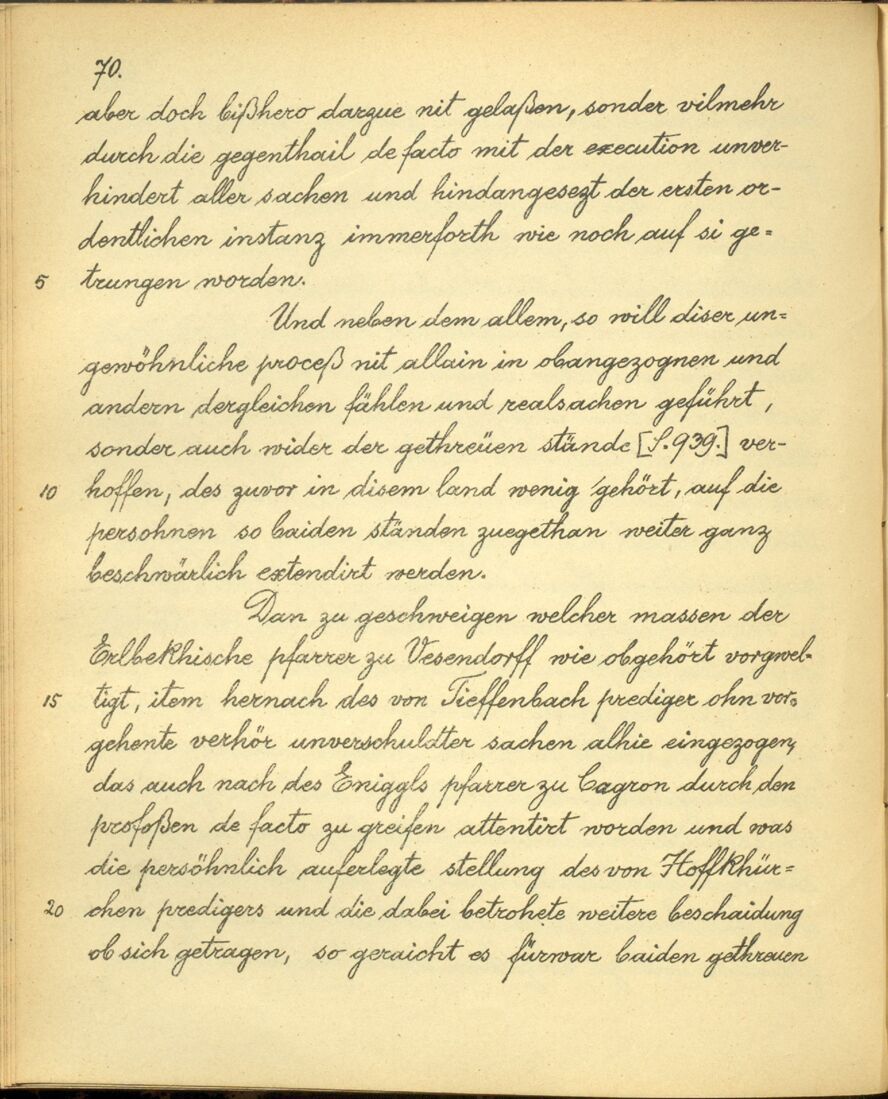 70.
aber doch bißhero darzue nit gelaßen, sonder vilmehr
durch die gegenthail de facto mit der execution unver-
hindert aller sachen und hindangesezt der ersten or-
dentlichen instanz immerforth wie noch auf si ge=
5 trungen worden.
Und neben dem allem, so will diser un=
gewöhnliche proceß nit allain in obangezognen und
andern dergleichen fählen und realsachen geführt,
sonder auch wider der gethreüen stände [S. 939.] ver-
10 hoffen, des zuvor in disem land wenig gehört, auf die
persohnen so baiden ständen zuegethan weiter ganz
beschwärlich extendirt werden.
Dan zu geschweigen welcher massen der
Erlbekhische pfarrer zu Vesendorff wie obgehört vorgwel-
15 tigt, item hernach des von Tieffenbach prediger ohn vor=
gehente verhör unverschuldter sachen alhie eingezogen,
das auch nach des Eniggls pfarrer zu Cagron durch den
profoßen de facto zu greifen attentirt worden und was
die persöhnlich auferlegte stellung des von Hoffkhür=
20 chen predigers und die dabei betrohete weitere beschaidung
ob sich getragen, so geraicht es fürwar baiden gethreuen